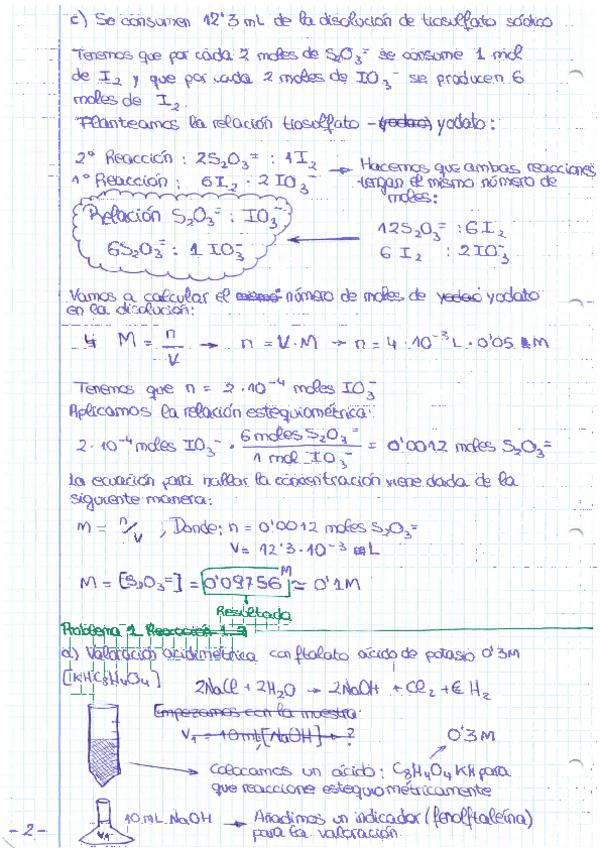 c) Se consumen 12'3 mL de la disolución de tiosulfato sódico
Tenemos que por cada 2 moles de S₂O₃⁼ se consume 1 mol
de I₂ y que por cada 2 moles de IO₃⁻ se producen 6
moles de I₂.
Planteamos la relación tiosulfato - yodato:
2º Reacción: 2S₂O₃⁼ : 1I₂
1º Reacción: 6I₂ : 2IO₃⁻
→ Hacemos que ambas reacciones
tengan el mismo número de
moles:
12S₂O₃⁼ : 6I₂
6 I₂ : 2IO₃⁻
Relación S₂O₃⁼ : IO₃⁻
6S₂O₃⁼ : 1 IO₃⁻
Vamos a calcular el número de moles de yodato
en la disolución:
↳ M = n/V → n = V·M → n = 4·10⁻³ L · 0'05 M
Tenemos que n = 2·10⁻⁴ moles IO₃⁻
Aplicamos la relación estequiométrica:
2·10⁻⁴ moles IO₃⁻ · 6 moles S₂O₃⁼ / 1 mol IO₃⁻ = 0'0012 moles S₂O₃⁼
La ecuación para hallar la concentración viene dada de la
siguiente manera:
M = n/V ; Donde: n = 0'0012 moles S₂O₃⁼
V = 12'3·10⁻³ L
M = [S₂O₃⁼] = 0'09756 M ≃ 0'1M
Resultado
Problema 1 Reacción 1.2
a) Valoración acidimétrica con ftalato ácido de potasio 0'3M
[KHC₈H₄O₄]
2NaCl + 2H₂O → 2NaOH + Cl₂ + H₂
Empezamos con la muestra:
V₁ = 10mL [NaOH] → ?
0'3M
Colocamos un ácido: C₈H₄O₄KH para
que reaccione estequiométricamente
10 mL NaOH → Añadimos un indicador (fenolftaleína)
para la valoración.
V₁
-2-